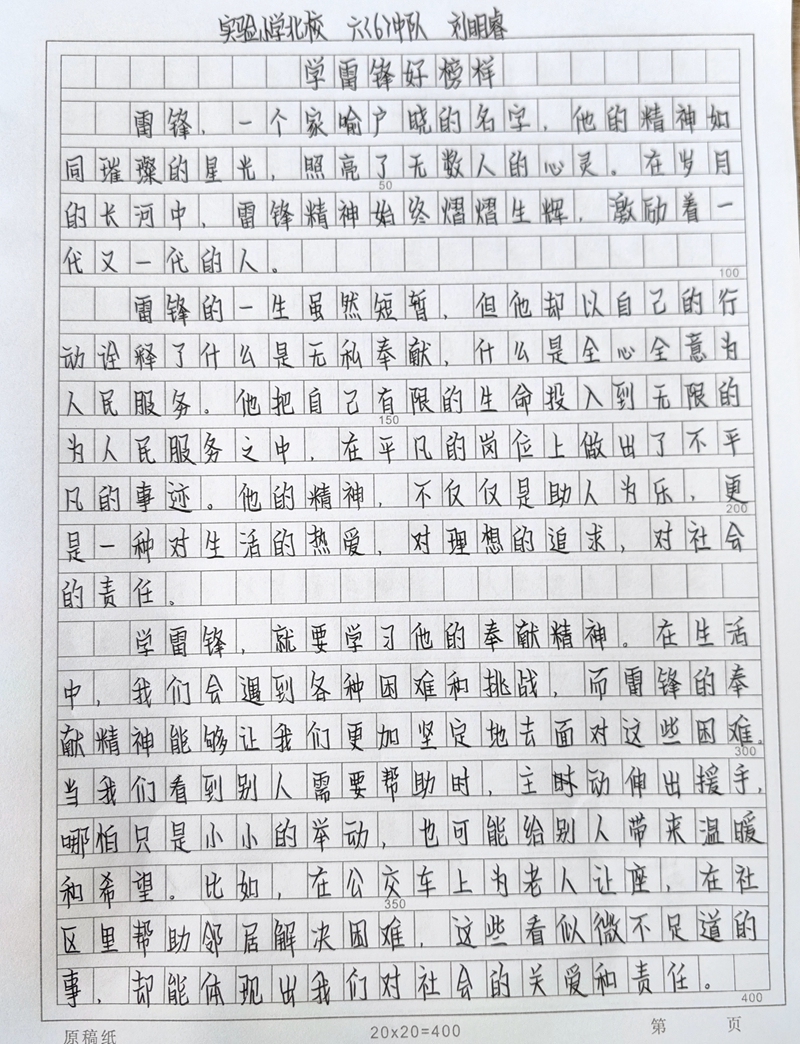 实验小学北校 六(6)中队 刘明睿
学雷锋好榜样
雷锋，一个家喻户晓的名字，他的精神如
同璀璨的星光，照亮了无数人的心灵。在岁月
50
的长河中，雷锋精神始终熠熠生辉，激励着一
代又一代的人。
100
雷锋的一生虽然短暂，但他却以自己的行
动诠释了什么是无私奉献，什么是全心全意为
人民服务。他把自己有限的生命投入到无限的
150
为人民服务之中，在平凡的岗位上做出了不平
凡的事迹。他的精神，不仅仅是助人为乐，更
200
是一种对生活的热爱，对理想的追求，对社会
的责任。
学雷锋，就要学习他的奉献精神。在生活
中，我们会遇到各种困难和挑战，而雷锋的奉
献精神能够让我们更加坚定地去面对这些困难。
300
当我们看到别人需要帮助时，主动伸出援手，
哪怕只是小小的举动，也可能给别人带来温暖
和希望。比如，在公交车上为老人让座，在社
350
区里帮助邻居解决困难，这些看似微不足道的
事，却能体现出我们对社会的关爱和责任。
400
原稿纸 20×20=400 第 页